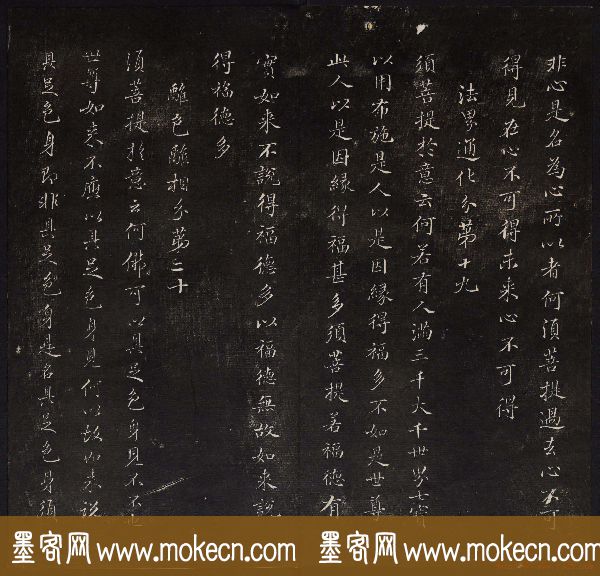 非心是名為心所以者何須菩提過去心不可
得見在心不可得未来心不可得
法界通化分第十九
須菩提於意云何若有人滿三千大千世界七寶
以用布施是人以是因緣得福多不如是世尊
此人以是因緣得福甚多須菩提若福德有
實如来不說得福德多以福德無故如来說
得福德多
離色離相分第二十
須菩提於意云何佛可以具足色身見不不也
世尊如来不應以具足色身見何以故如来說
具足色身即非具足色身是名具足色身須
墨客网 www.mokecn.com 墨客网 www.mokecn.com